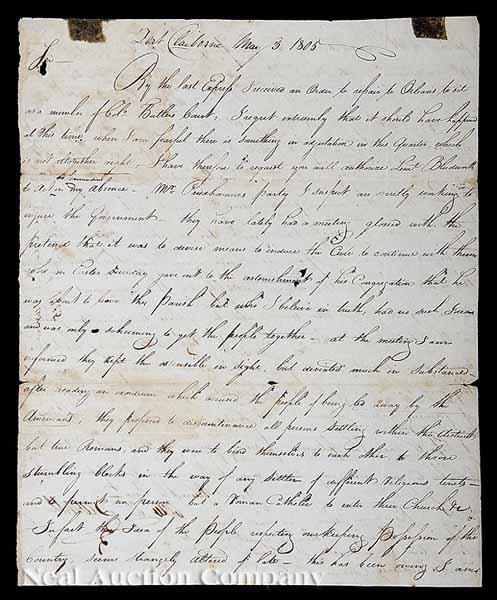 Fort Claiborne May 3. 1805
Sir —
By the last Express I received an Order to repair to Orleans to sit
as a member of Col. Butlers Court, I regret extremely that it should have happened
at this time, when I am fearful there is something in agitation in this Quarter which
is not altogether right, I have therefore to request you will authorize Lieut.
to command
to act in my absence — Mr. party I suspect are secretly working to
injure the Government they have lately had a meeting glossed with the
pretence that it was to devise means to induce the Cure to continue with them
who on Easter Sunday gave out to the astonishment of his Congregation that he
was about to leave this Parish but who I believe in truth, had no such Idea
and was only scheming to get the people together — at the meeting I am
informed they kept the ostensible in sight, but deviated much in Substance
after reading an which accused the people of being led away by the
Americans, they proposed to discountenance all persons settling within the District
but true Romans, and they were to bind themselves to each other, to throw
stumbling blocks in the way of any settler of different religious tenets —
and to permit no person but a Roman Catholic to enter their Church &c
In fact the Idea of the People respecting our keeping Possession of this
Country seems strangely altered of late — this has been owing I am
Neal Auction Company